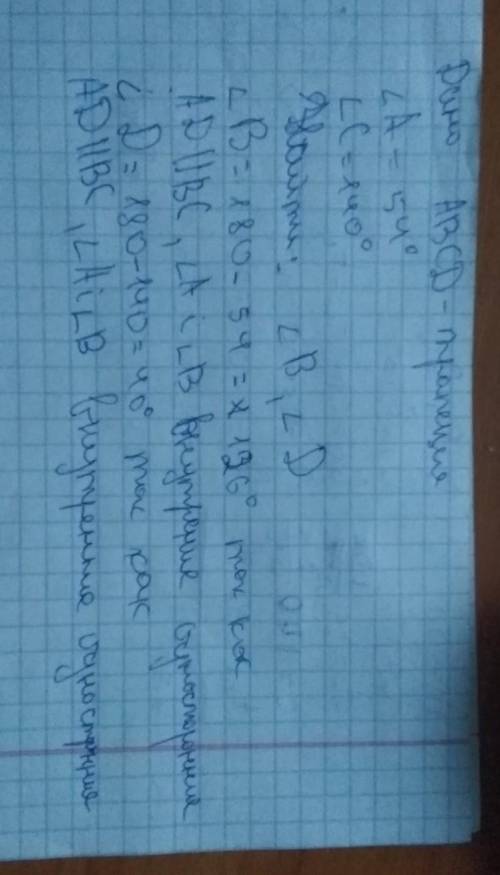 Дано ABCD - трапеция
∠A = 54°
∠C = 140°
Найти: ∠B, ∠D
∠B = 180 - 54 = 126° так как
AD||BC, ∠A i ∠B внутрение односторонние
∠D = 180 - 140 = 40° так как
AD||BC, ∠A i ∠B внутренние односторонние